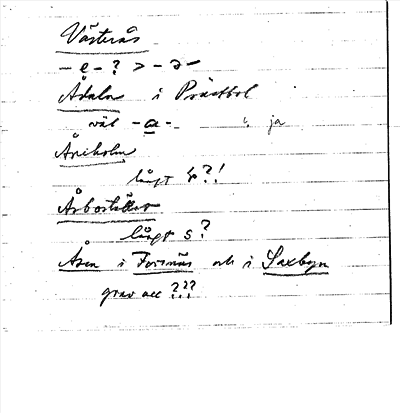 Västerås
- e - ? > - ə -
Ådalen i Prästbol
väl - a - ja
Åriholm
långt ?!
långt s?
Åsen i Fornäs och i Saxbyn
grav acc ???